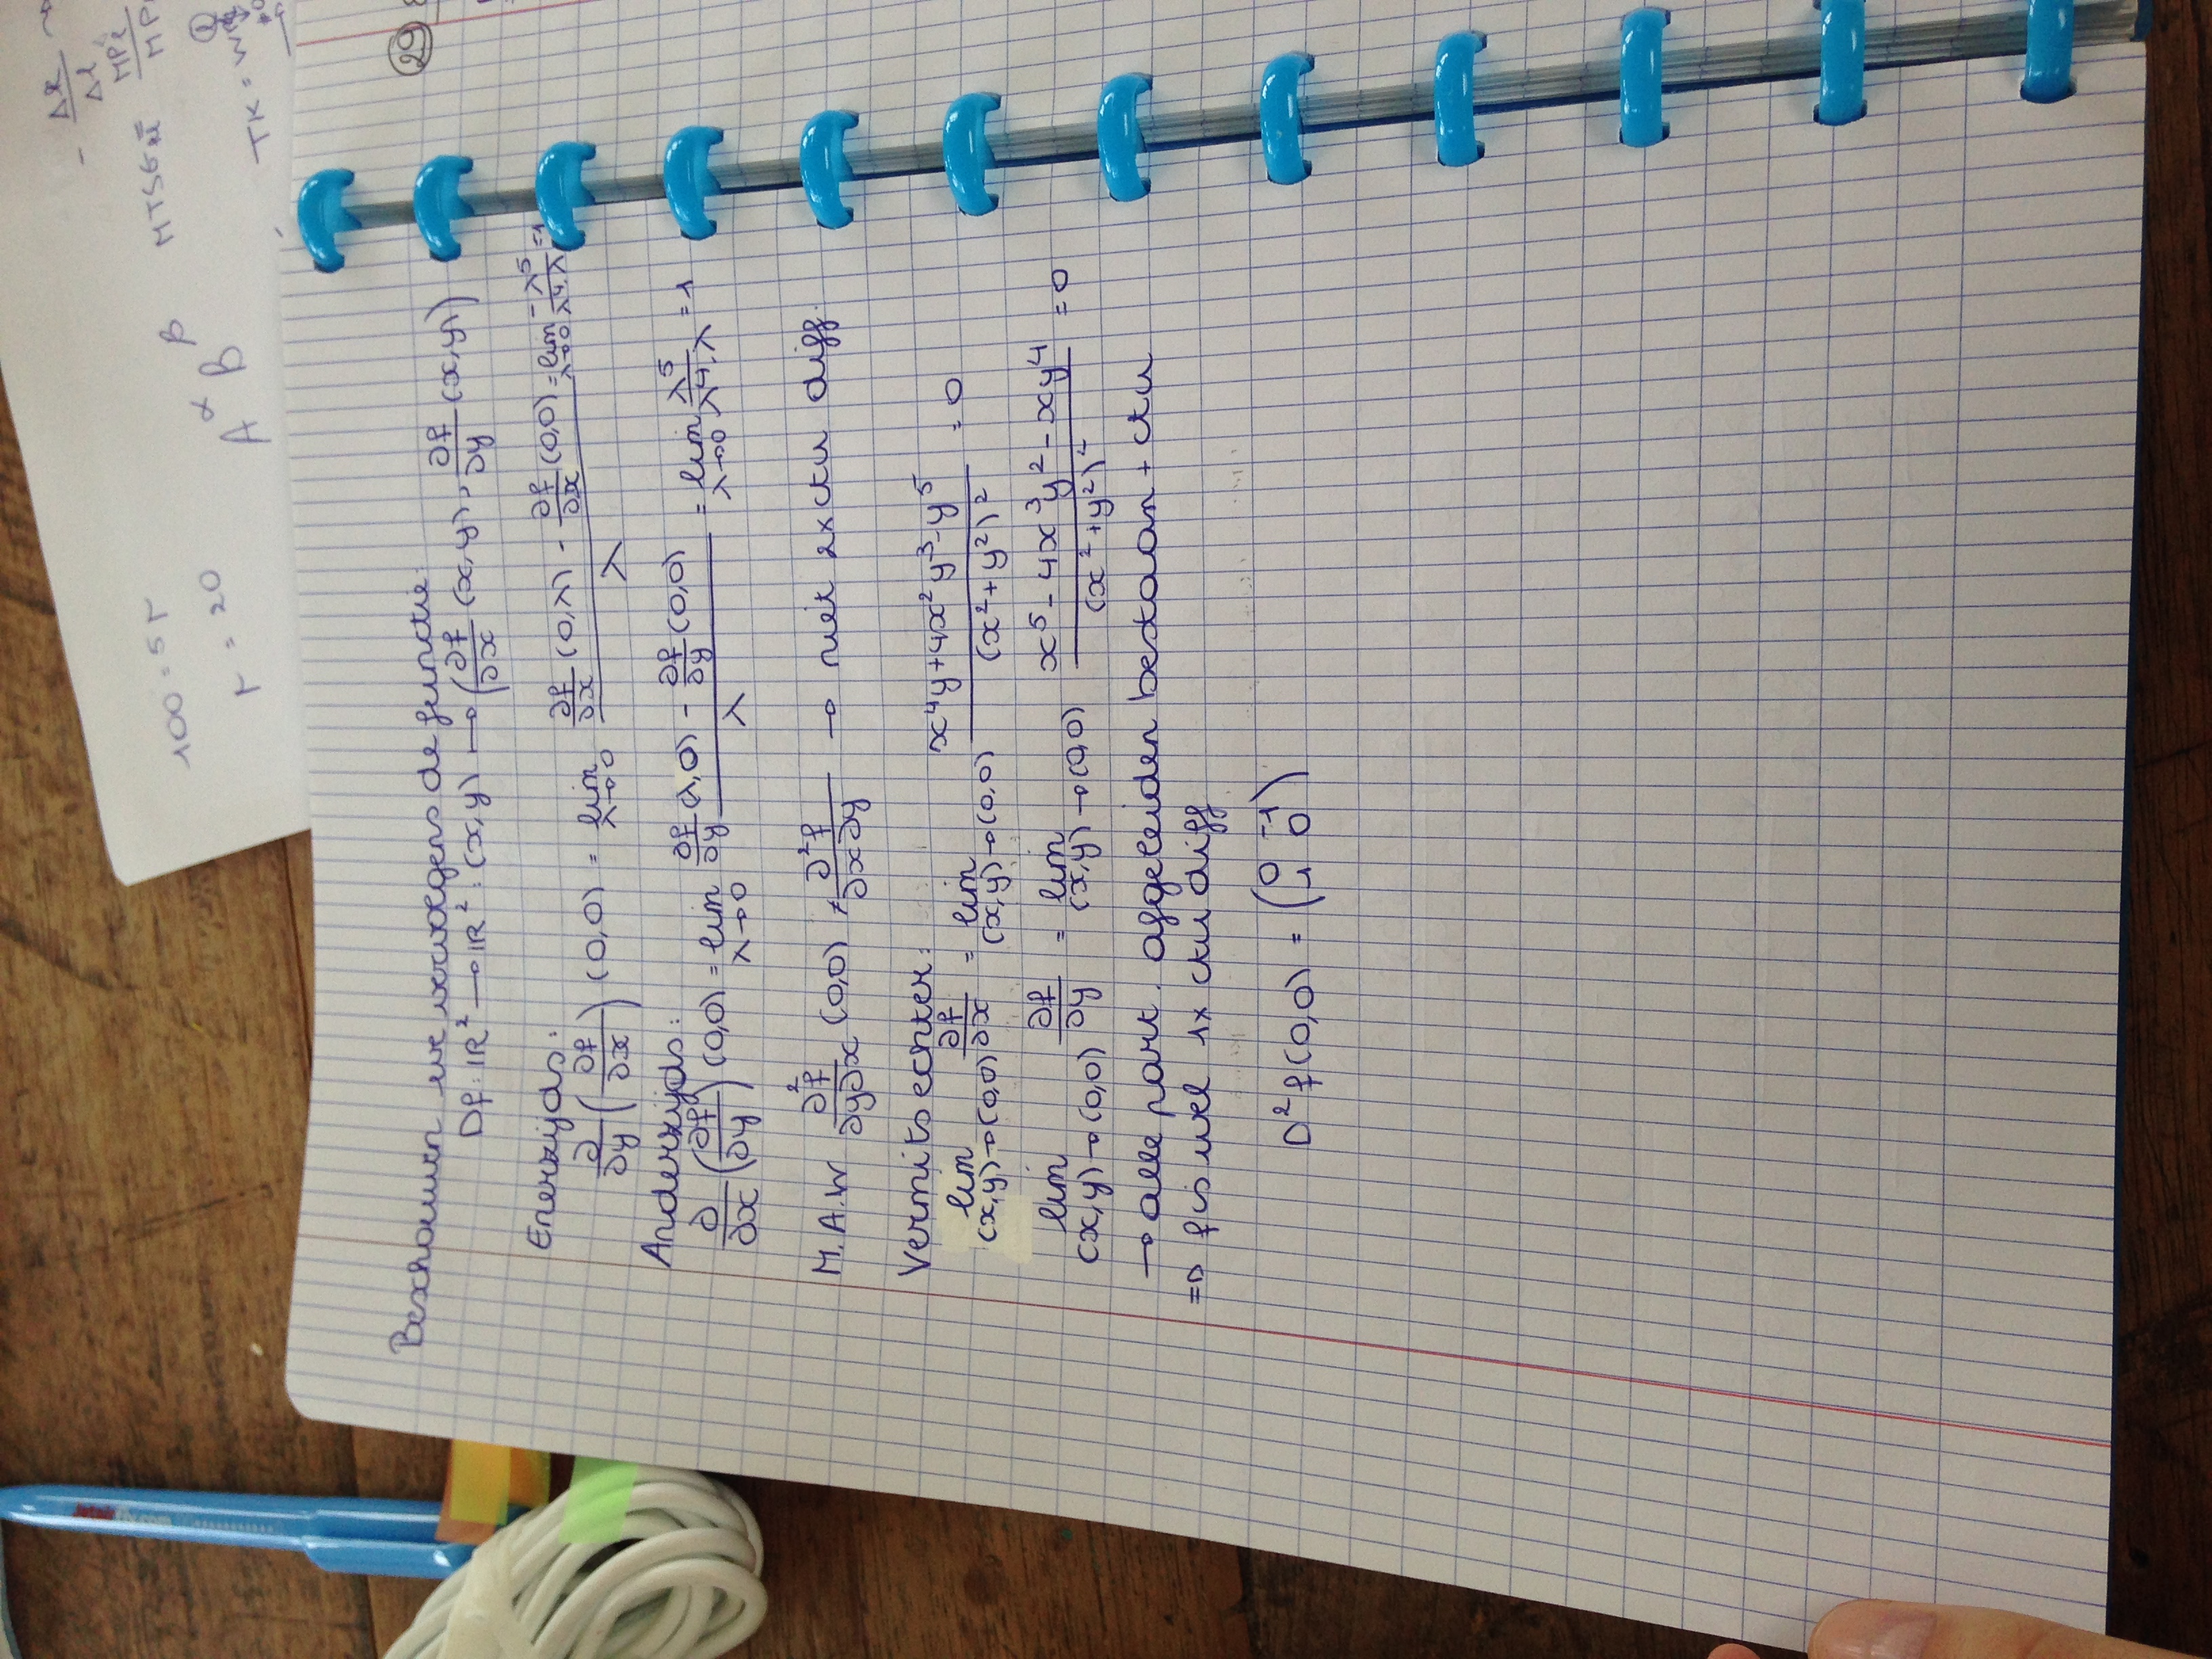 Beschouwen we vervolgens de functie:
Df: ℝ² → ℝ²: (x,y) ↦ (∂f/∂x (x,y), ∂f/∂y (x,y))
Enerzijds:
∂/∂y (∂f/∂x) (0,0) = lim λ→0 (∂f/∂x (0,λ) - ∂f/∂x (0,0))/λ = lim λ→0 -λ⁵/(λ⁴.λ) = 1
Anderzijds:
∂/∂x (∂f/∂y) (0,0) = lim λ→0 (∂f/∂y (λ,0) - ∂f/∂y (0,0))/λ = lim λ→0 λ⁵/(λ⁴.λ) = 1
M.A.W ∂²f/∂y∂x (0,0) ≠ ∂²f/∂x∂y → niet 2x ctu diff.
Vermits echter:
lim (x,y)→(0,0) ∂f/∂x = lim (x,y)→(0,0) (x⁴y+4x²y³-y⁵)/(x²+y²)² = 0
lim (x,y)→(0,0) ∂f/∂y = lim (x,y)→(0,0) (x⁵-4x³y²-xy⁴)/(x²+y²)² = 0
→ alle part. afgeleiden bestaan + ctu
⇒ f is wel 1x ctu diff
D²f(0,0) = (0 -1
1 0)
29
100 = 5r
r = 20
A^α B^β
MTSG
MP
TK = w